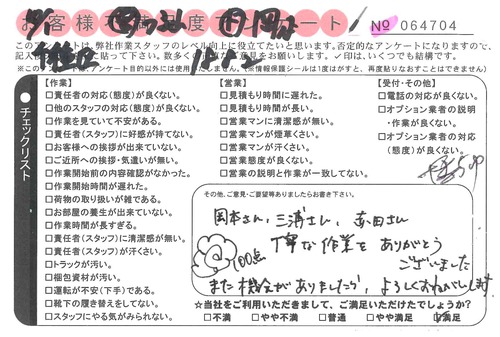 お客様満足度アンケート
No 064704
このアンケートは、弊社作業スタッフのレベル向上に役立てたいと思います。否定的なアンケートになりますので、
記入 に貼って下さい。数多くの 意見をお願いします。✓印は、いくつでも結構です。
※このアンケートは、アンケート目的以外には使用いたしません。(※情報保護シールは1度はがすと、再度貼りなおすことはできません)
チェックリスト
【作業】
□責任者の対応(態度)が良くない。
□他のスタッフの対応(態度)が良くない。
□作業を見ていて不安がある。
□責任者(スタッフ)に好感が持てない。
□お客様への挨拶が出来ていない。
□ご近所への挨拶・気遣いが無い。
□作業開始前の内容確認がなかった。
□作業開始時間が遅れた。
□荷物の取り扱いが雑である。
□お部屋の養生が出来ていない。
□作業時間が長すぎる。
□責任者(スタッフ)に清潔感が無い。
□責任者(スタッフ)が汗くさい。
□トラックが汚い。
□梱包資材が汚い。
□運転が不安(下手)である。
□靴下の履き替えをしてない。
□スタッフにやる気がみられない。
【営業】
□見積もり時間に遅れた。
□見積もり時間が長い。
□営業マンに清潔感が無い。
□営業マンが煙草くさい。
□営業マンが汗くさい。
□営業態度が良くない。
□営業の説明と作業が一致してない。
【受付・その他】
□電話の対応が良くない。
□オプション業者の説明
・作業が良くない。
□オプション業者の対応
(態度)が良くない。
その他、ご意見・ご要望等ありましたらお書き下さい。
岡本さん、三浦さん、 さん
丁寧な作業を ありがとう
ございました
100点
また機会がありましたら、よろしくおねがいします。
☆当社をご利用いただきまして、ご満足いただけたでしょうか?
□不満 □やや不満 □普通 □やや満足 ☑満足